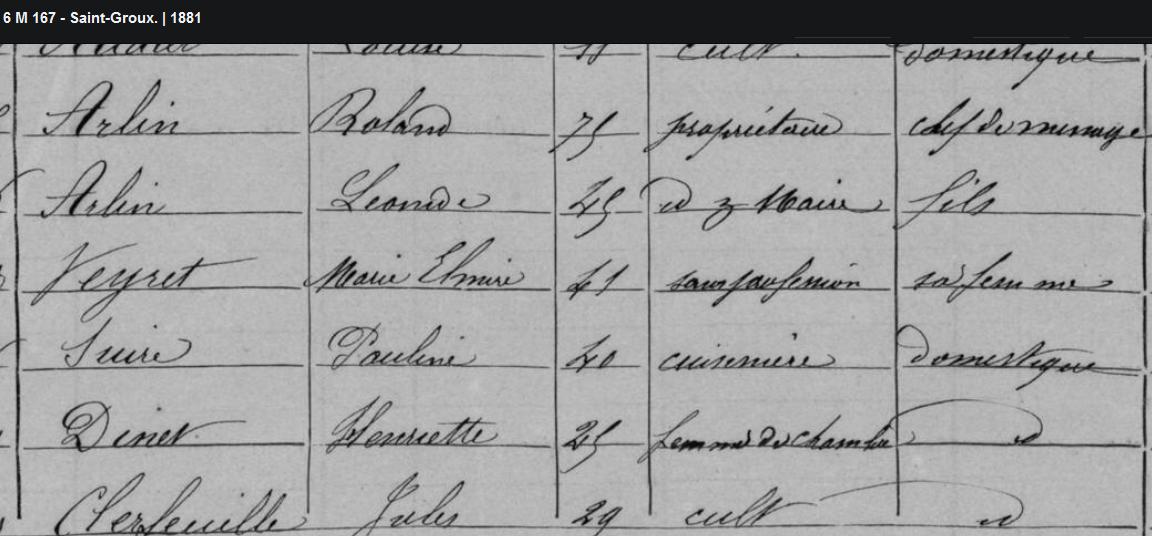 6 M 167 - Saint-Groux. | 1881
Louise cult. domestique
Arlin Roland 75 propriétaire chef de menage
Arlin Leonide 45 d Maire fils
Veyret Marie Elmire 41 sans profession sa femme
Suire Pauline 40 cuisinière domestique
Dinet Henriette 25 femme de chambre d
Clerfeuille Jules 29 cult d